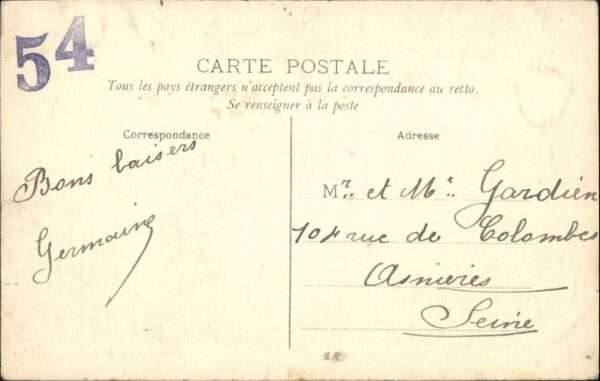 54
CARTE POSTALE
Tous les pays étrangers n'acceptent pas la correspondance au recto.
Se renseigner à la poste
Correspondance
Bons baisers
Germaine
Adresse
Mr. et Me. Gardien
104 rue de Colombes
Asnieres
Seine